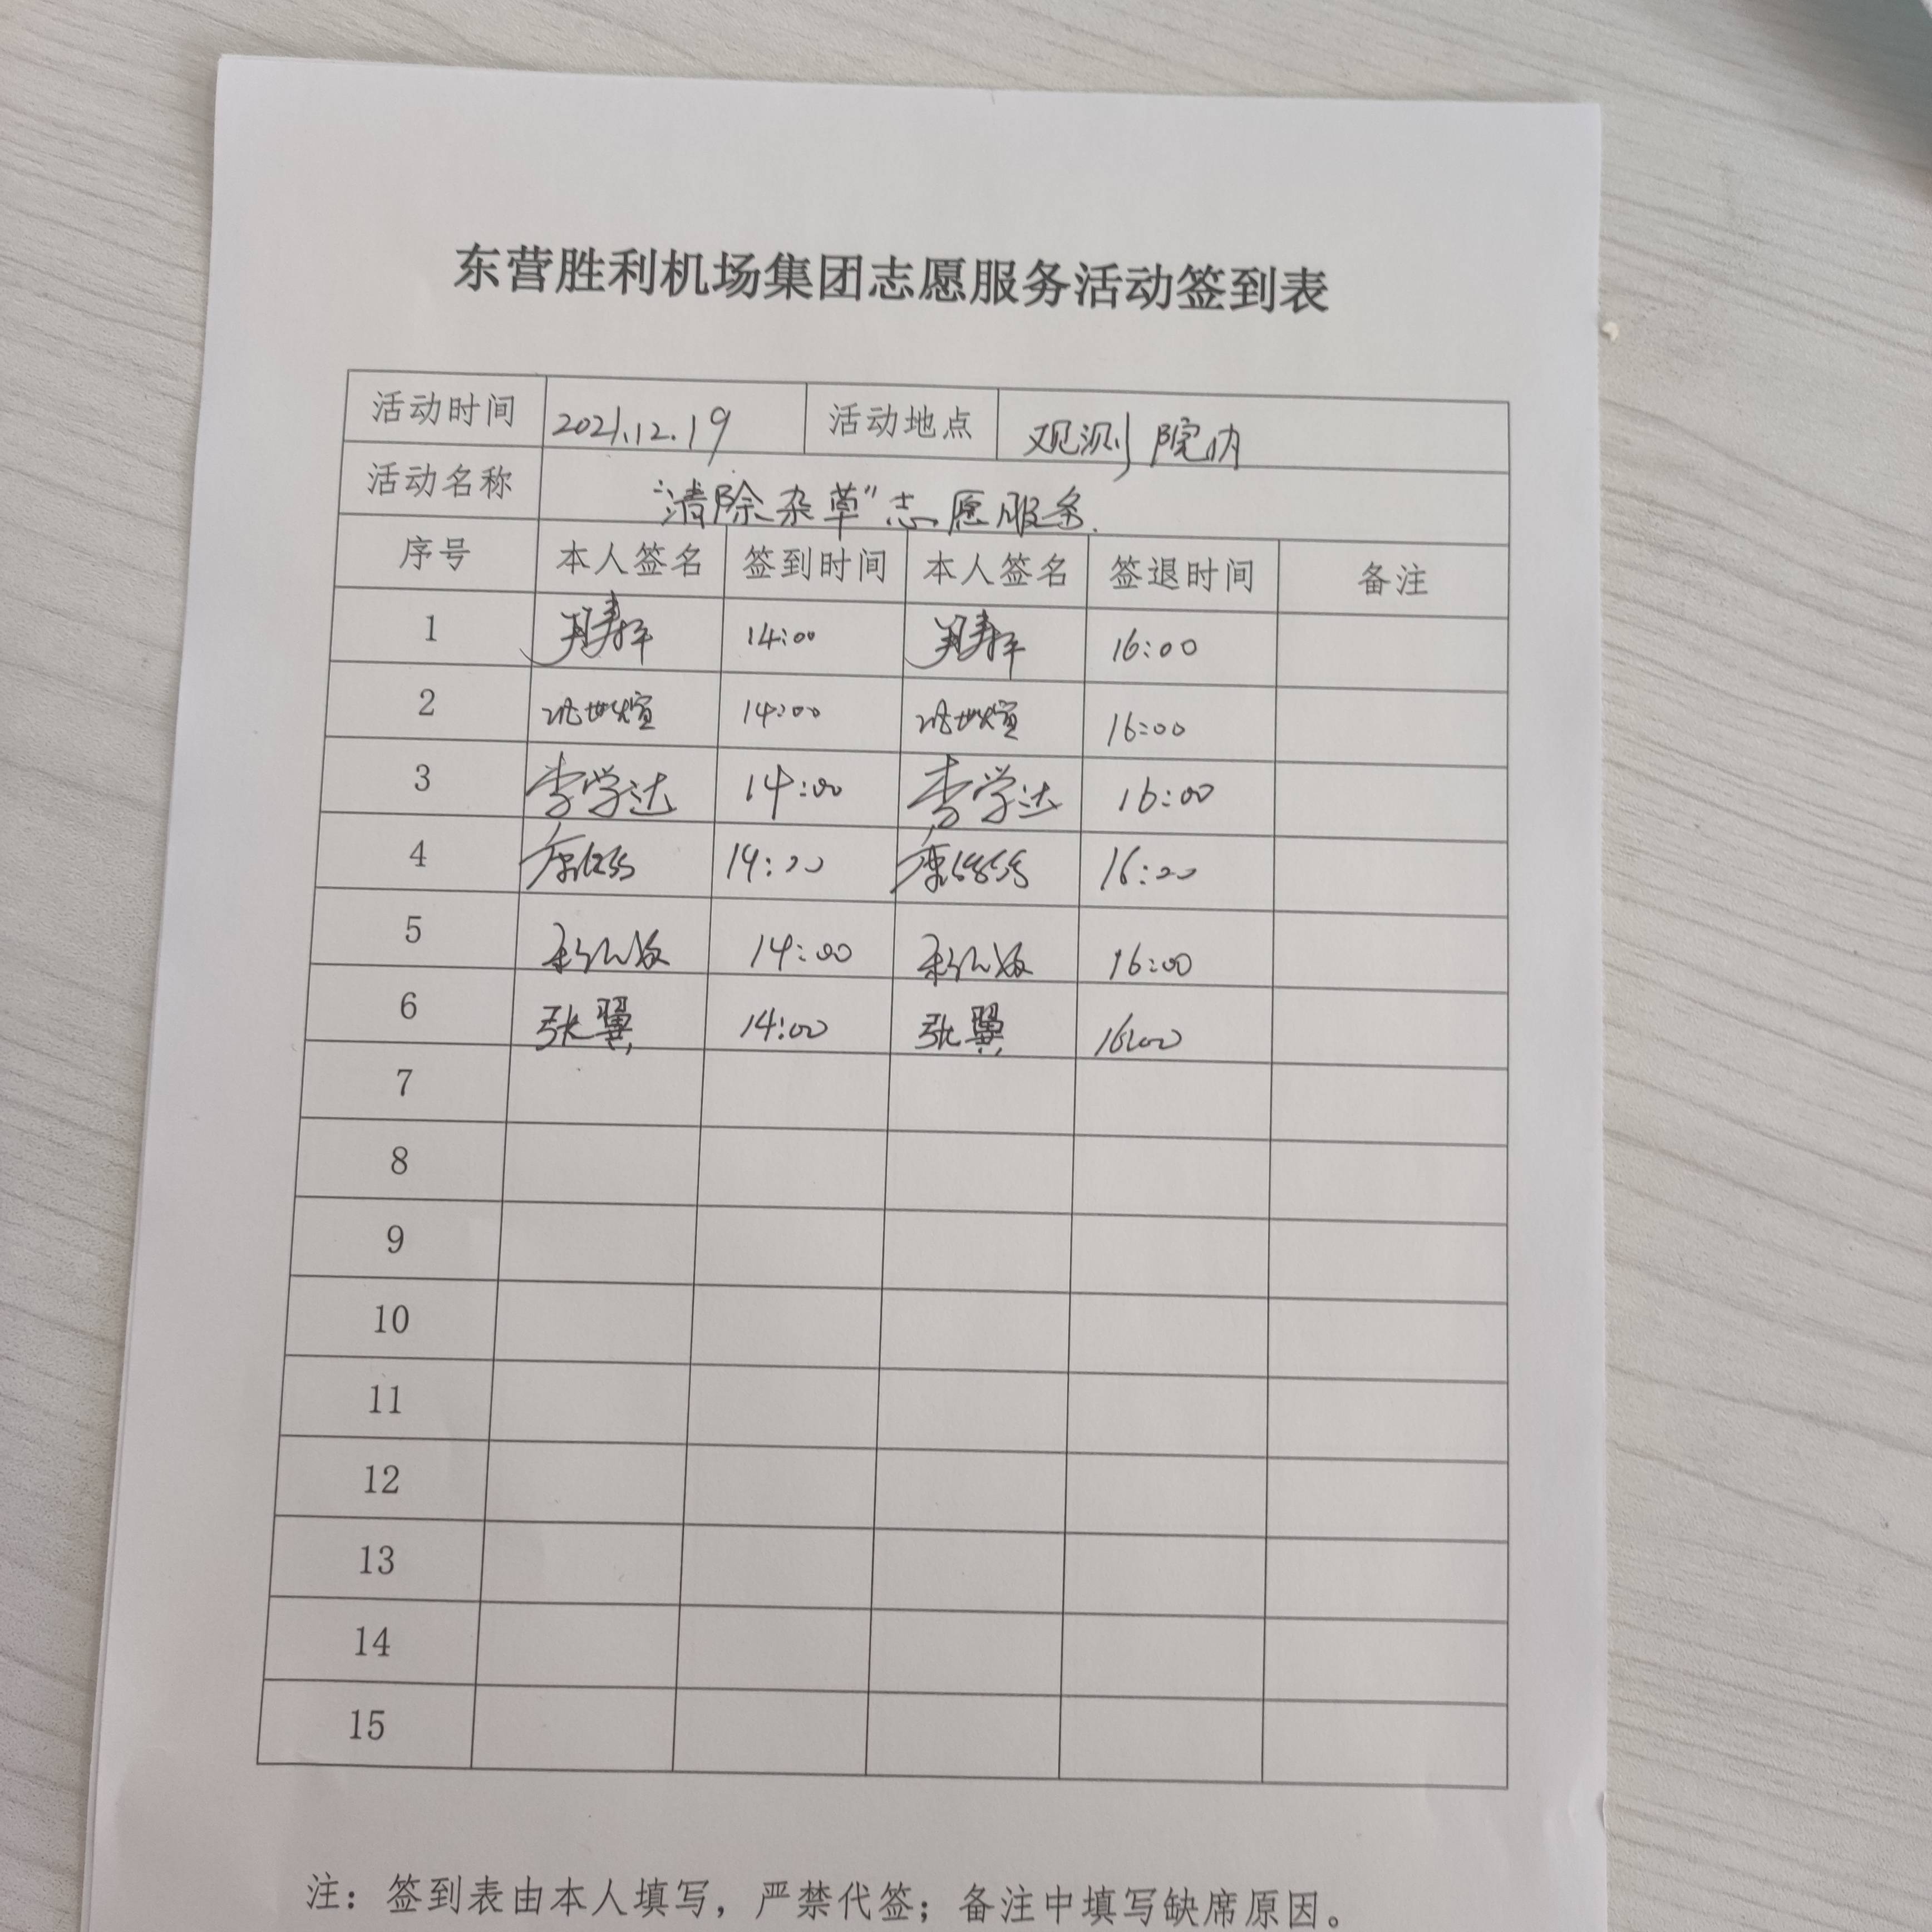 东营胜利机场集团志愿服务活动签到表
活动时间 2021.12.19 活动地点 观测院内
活动名称 “清除杂草”志愿服务.
序号 本人签名 签到时间 本人签名 签退时间 备注
1 14:00 16:00
2 14:00 16:00
3 李学达 14:00 李学达 16:00
4 14:00 16:00
5 14:00 16:00
6 张翼 14:00 张翼 16:00
7
8
9
10
11
12
13
14
15
注：签到表由本人填写，严禁代签；备注中填写缺席原因。